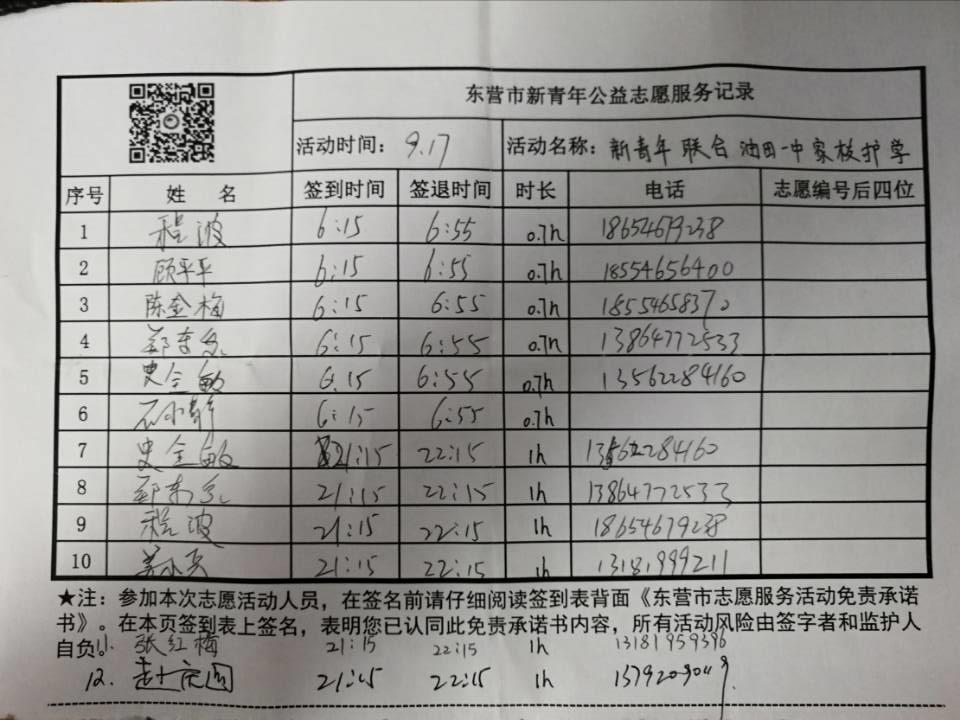 东营市新青年公益志愿服务记录
活动时间： 9.17 活动名称：新青年联合油田一中家校护学
序号 姓 名 签到时间 签退时间 时长 电话 志愿编号后四位
1 程波 6:15 6:55 0.7h 18654679238
2 顾平平 6:15 6:55 0.7h 18554656400
3 陈金梅 6:15 6:55 0.7h 18554658370
4 6:15 6:55 0.7h 13864772533
5 史全敏 6:15 6:55 0.7h 13562284160
6 石小静 6:15 6:55 0.7h
7 史全敏 21:15 22:15 1h 13562284160
8 21:15 22:15 1h 13864772533
9 程波 21:15 22:15 1h 18654679238
10 21:15 22:15 1h 13181999211
★注：参加本次志愿活动人员，在签名前请仔细阅读签到表背面《东营市志愿服务活动免责承诺
书》。在本页签到表上签名，表明您已认同此免责承诺书内容，所有活动风险由签字者和监护人
自负。
11. 张红梅 21:15 22:15 1h 13181959396
12. 21:15 22:15 1h